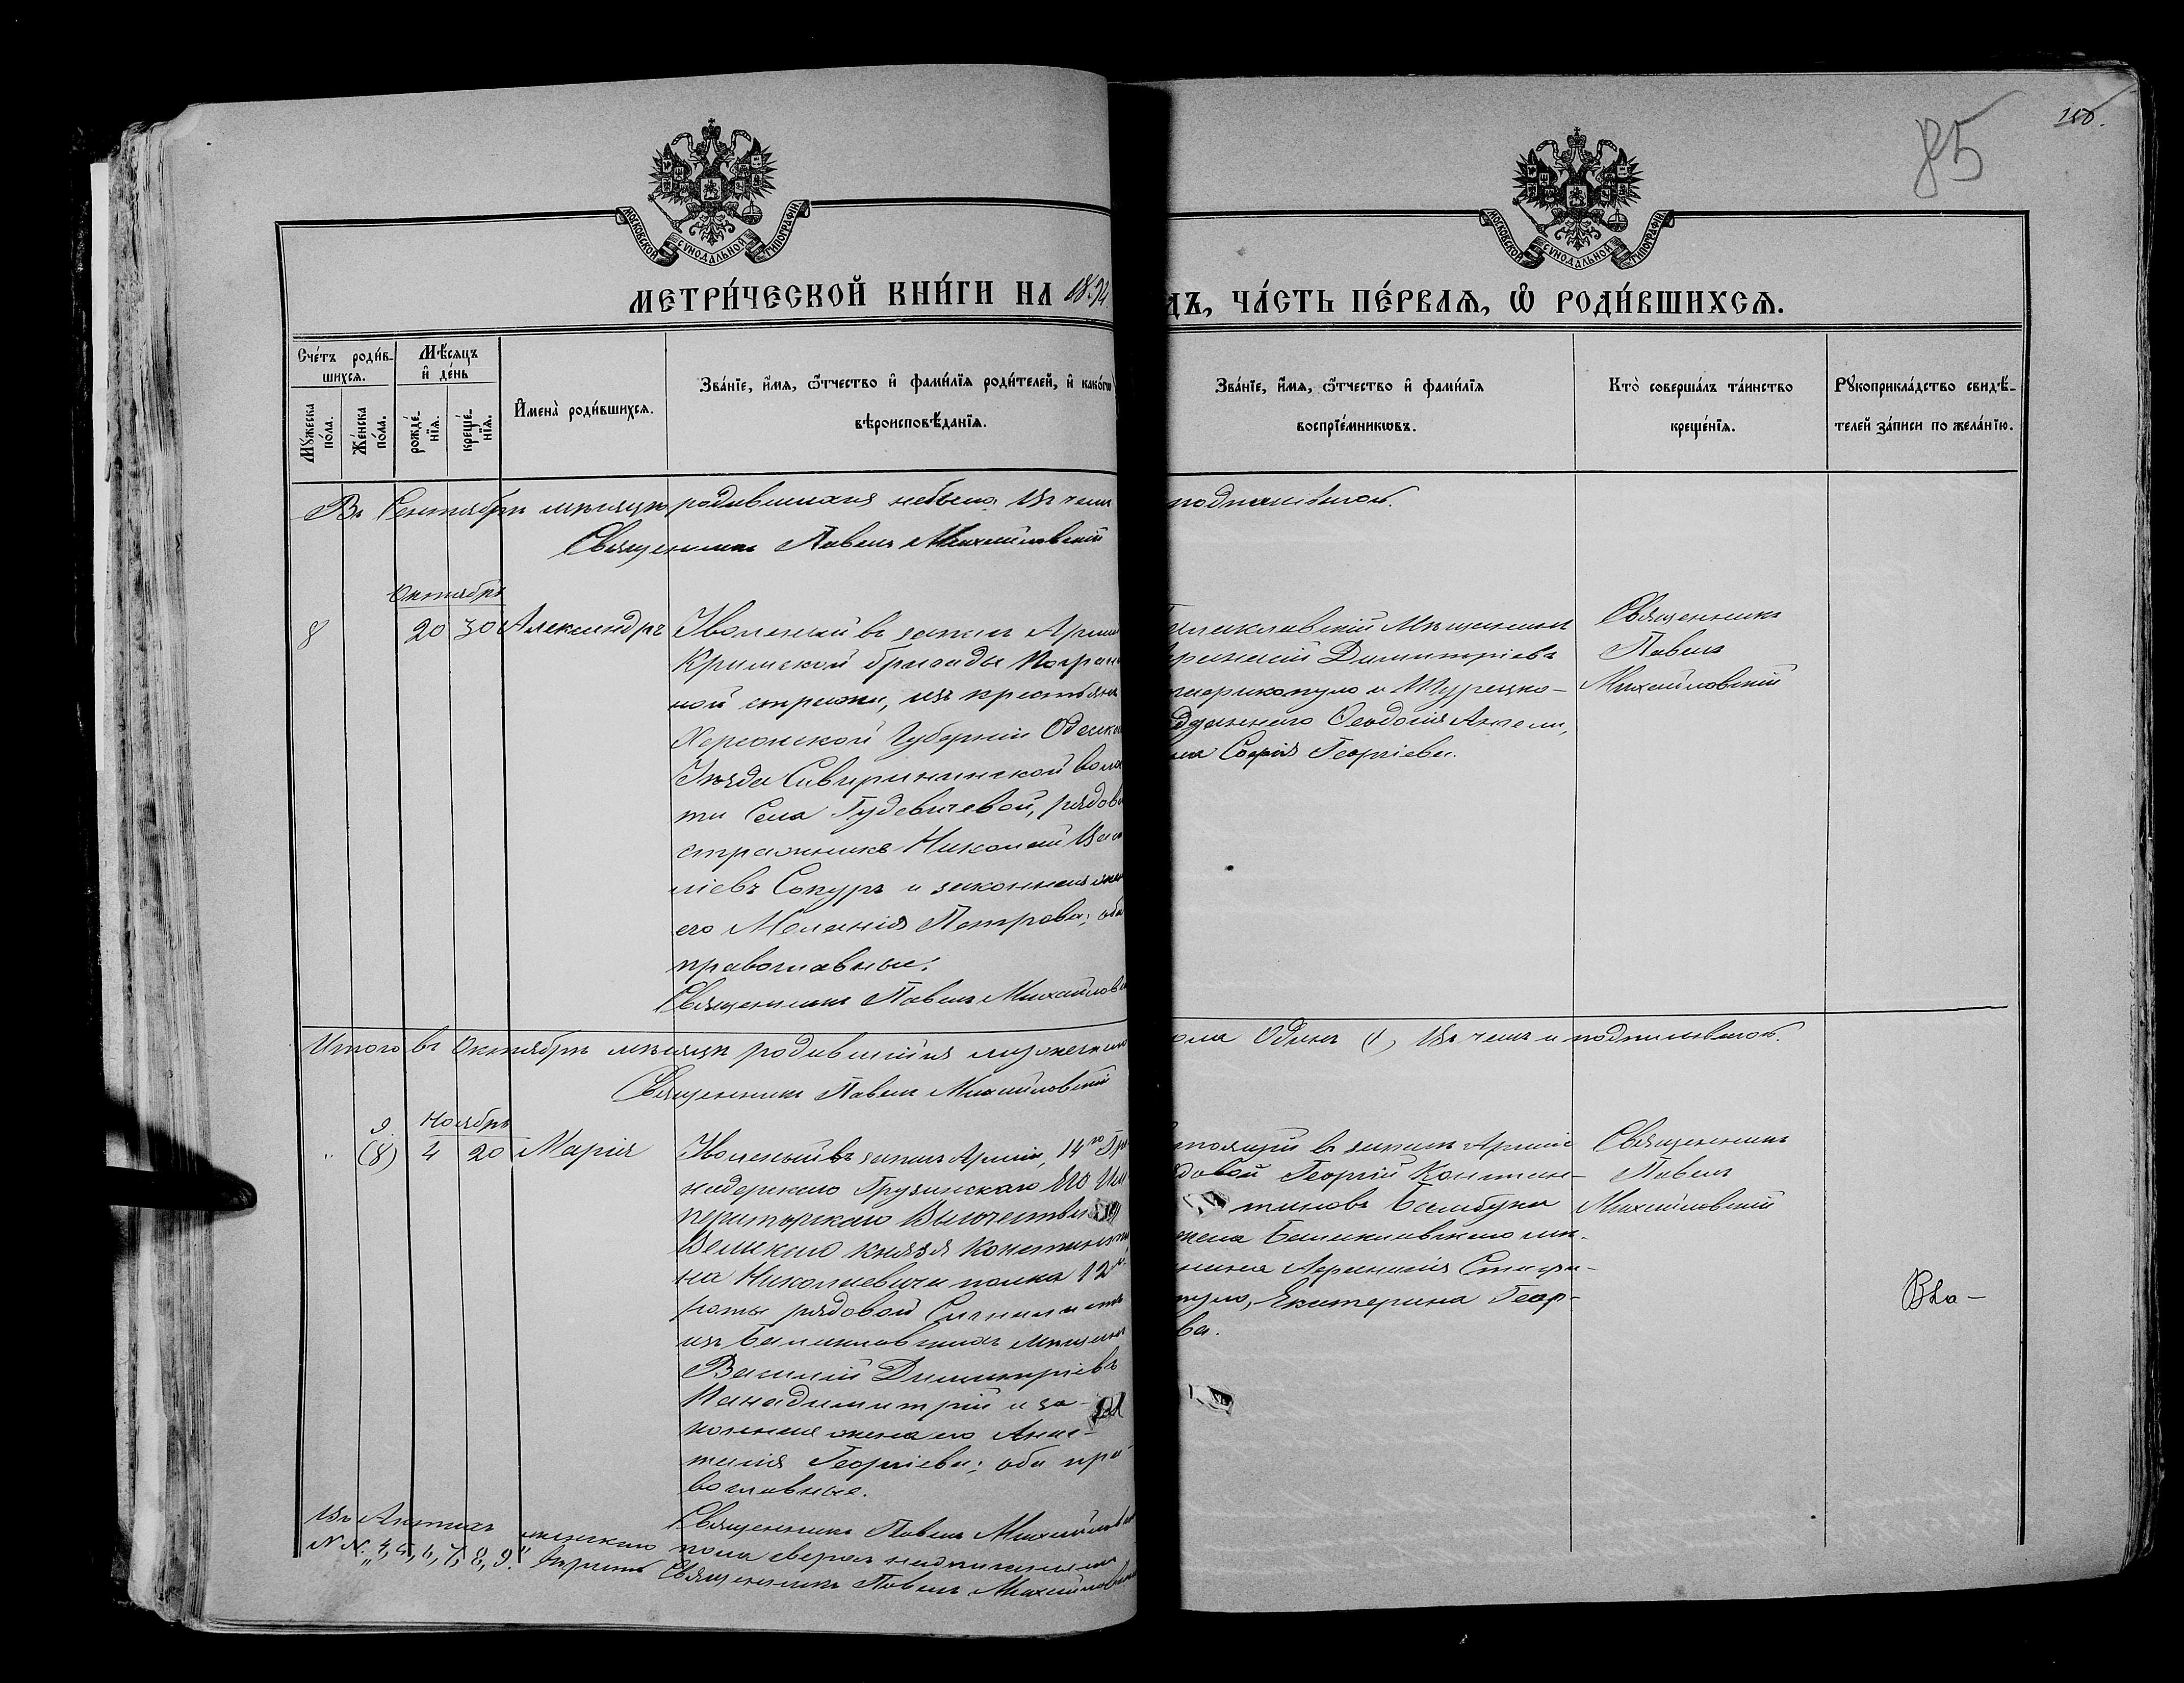 85
МОСКОВСКОЙ СѴНОДАЛЬНОЙ ТИПОГРАФІИ
МОСКОВСКОЙ СѴНОДАЛЬНОЙ ТИПОГРАФІИ
МЕТРИ́ЧЕСКОЙ КНИ́ГИ НА 1892
ДЪ, ЧА́СТЬ ПЕ́РВАѦ, Ѽ РОДИ́ВШИХСѦ.
Сче́тъ роди́в-
шихсѧ.
Мꙋжеска по́ла.
Же́нска по́ла.
Мѣ́сѧцъ
и҆ де́нь
рожде́-
нїѧ.
креще́-
нїѧ.
И҆мена̀ роди́вшихсѧ.
Зва́нїе, и҆́мѧ, ѻ҆́тчество и҆ фами́лїѧ роди́телей, и҆ како́гѡ
вѣроисповѣ́данїѧ.
Зва́нїе, и҆́мѧ, ѻ҆́тчество и҆ фами́лїѧ
воспрїе́мникѡвъ.
Кто̀ соверша́лъ та́инство
креще́нїѧ.
Рꙋкоприкла́дство свидѣ́-
телей за́писи по жела́нїю.
Въ Сентябрѣ мѣсяцѣ родившихся небыло. Въ чемъ
подписываюсь.
Священникъ Павелъ Михайловскій
Октябрь
8 20 30 Александръ
Уволенный въ запасъ Арміи
Крымской бригады Погран
ной стражи, изъ крестьянъ
Херсонской Губерніи Одесск
Уѣзда Севериновской воло
сти Села Гудевичевой, рядов
стражникъ Николай Васи
ліевъ Сокуръ и законная же
его Меланія Петрова; оба
православные.
Священникъ Павелъ Михайлов
алаклавскій Мѣщанинъ
Димитріевъ
и Турецко-
подданнаго Ѳеодосія Ангели,
София Георгіева.
Священникъ
Павелъ
Михайловскій
Итого въ Октябрѣ мѣсяцѣ родившійся мужескаго
пола Одинъ (1), Въ чемъ и подписываюсь.
Священникъ Павелъ Михайловскій
9. Ноябрь
" (8) 4 20 Марія
Уволеный въ запасъ Арміи, 14го Гре
надерскаго Грузинскаго Его Им
ператорскаго Высочества
Великаго Князя Константи
на Николаевича полка 12й
роты рядовой
изъ Балаклавскихъ мѣщанъ
Василій Димитріевъ
Пападимитрій и за-
конная жена его Анас-
тасія Георгіева; оба пра-
вославные.
Священникъ Павелъ Михайлов
стоящій въ запасѣ Арміи
рядовой Георгій Констан-
тиновъ
жена Балаклавскаго мѣ-
Екатерина Геор-
ва.
Священникъ
Павелъ
Михайловскій
Въ Актахъ женскаго пола сверхъ надписаннымъ
N N. "4, 5, 6, 7, 8, 9." вѣрить Священникъ Павелъ Михайловскій